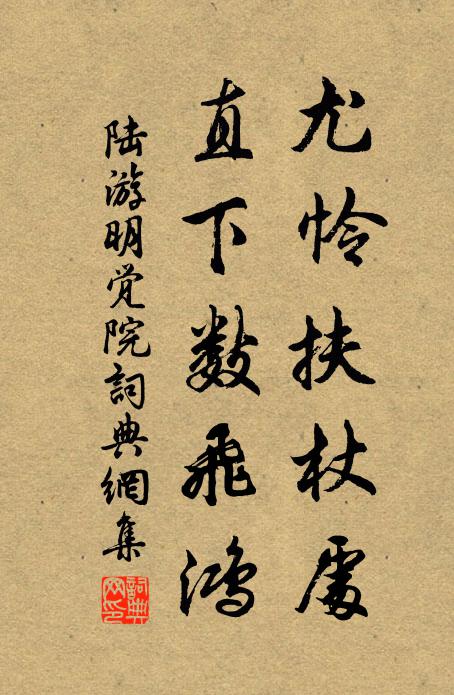 尤怜扶杖處
直下数飛鴻
陆游明觉院詞典網集
詞典网印